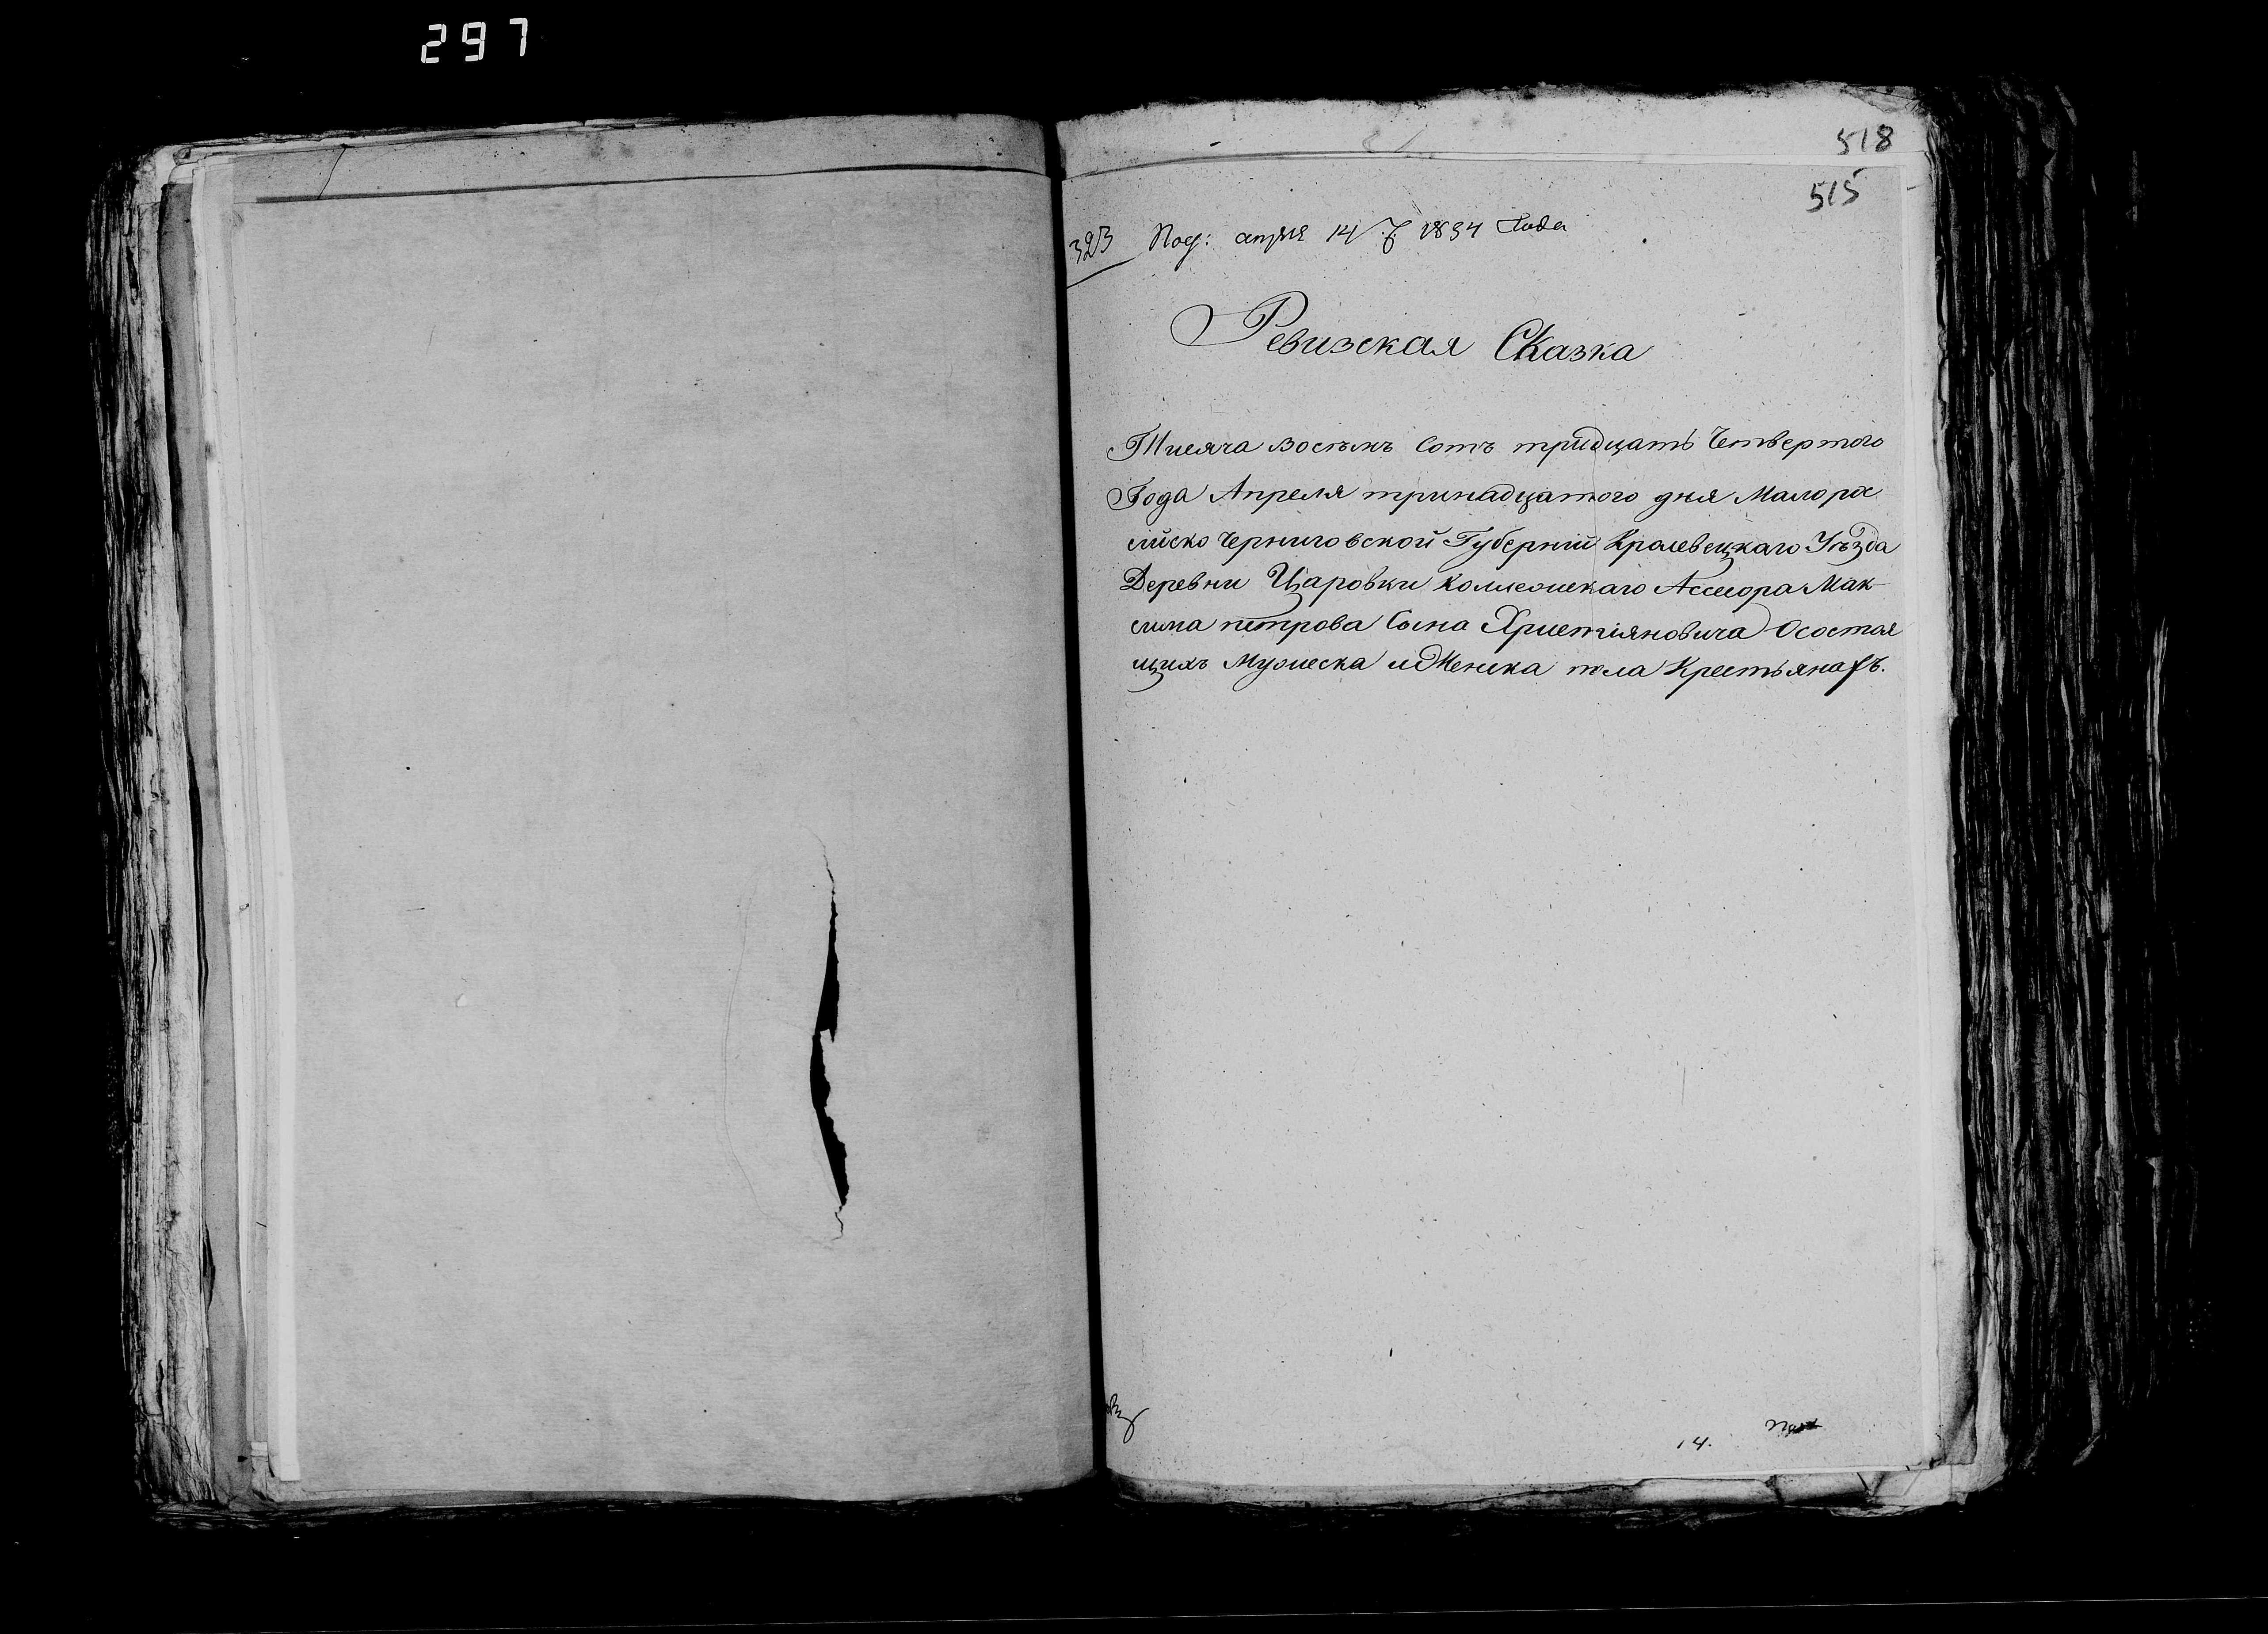 297
518
515
323 Под: апреля 14 1834 Года
Ревизская Сказка
Тисяча восемъ сотъ тридцать Четвертого
Года Апреля тринадцатого дня Малорос
сійско Черниговской Губерніи Кролевецкаго Уѣзда
Деревни Царовки Коллежскаго Ассесора Мак
сима петрова Сына Христіяновича Осостоя
щихъ Мужеска иЖенска пола Крестьянахъ.
14.